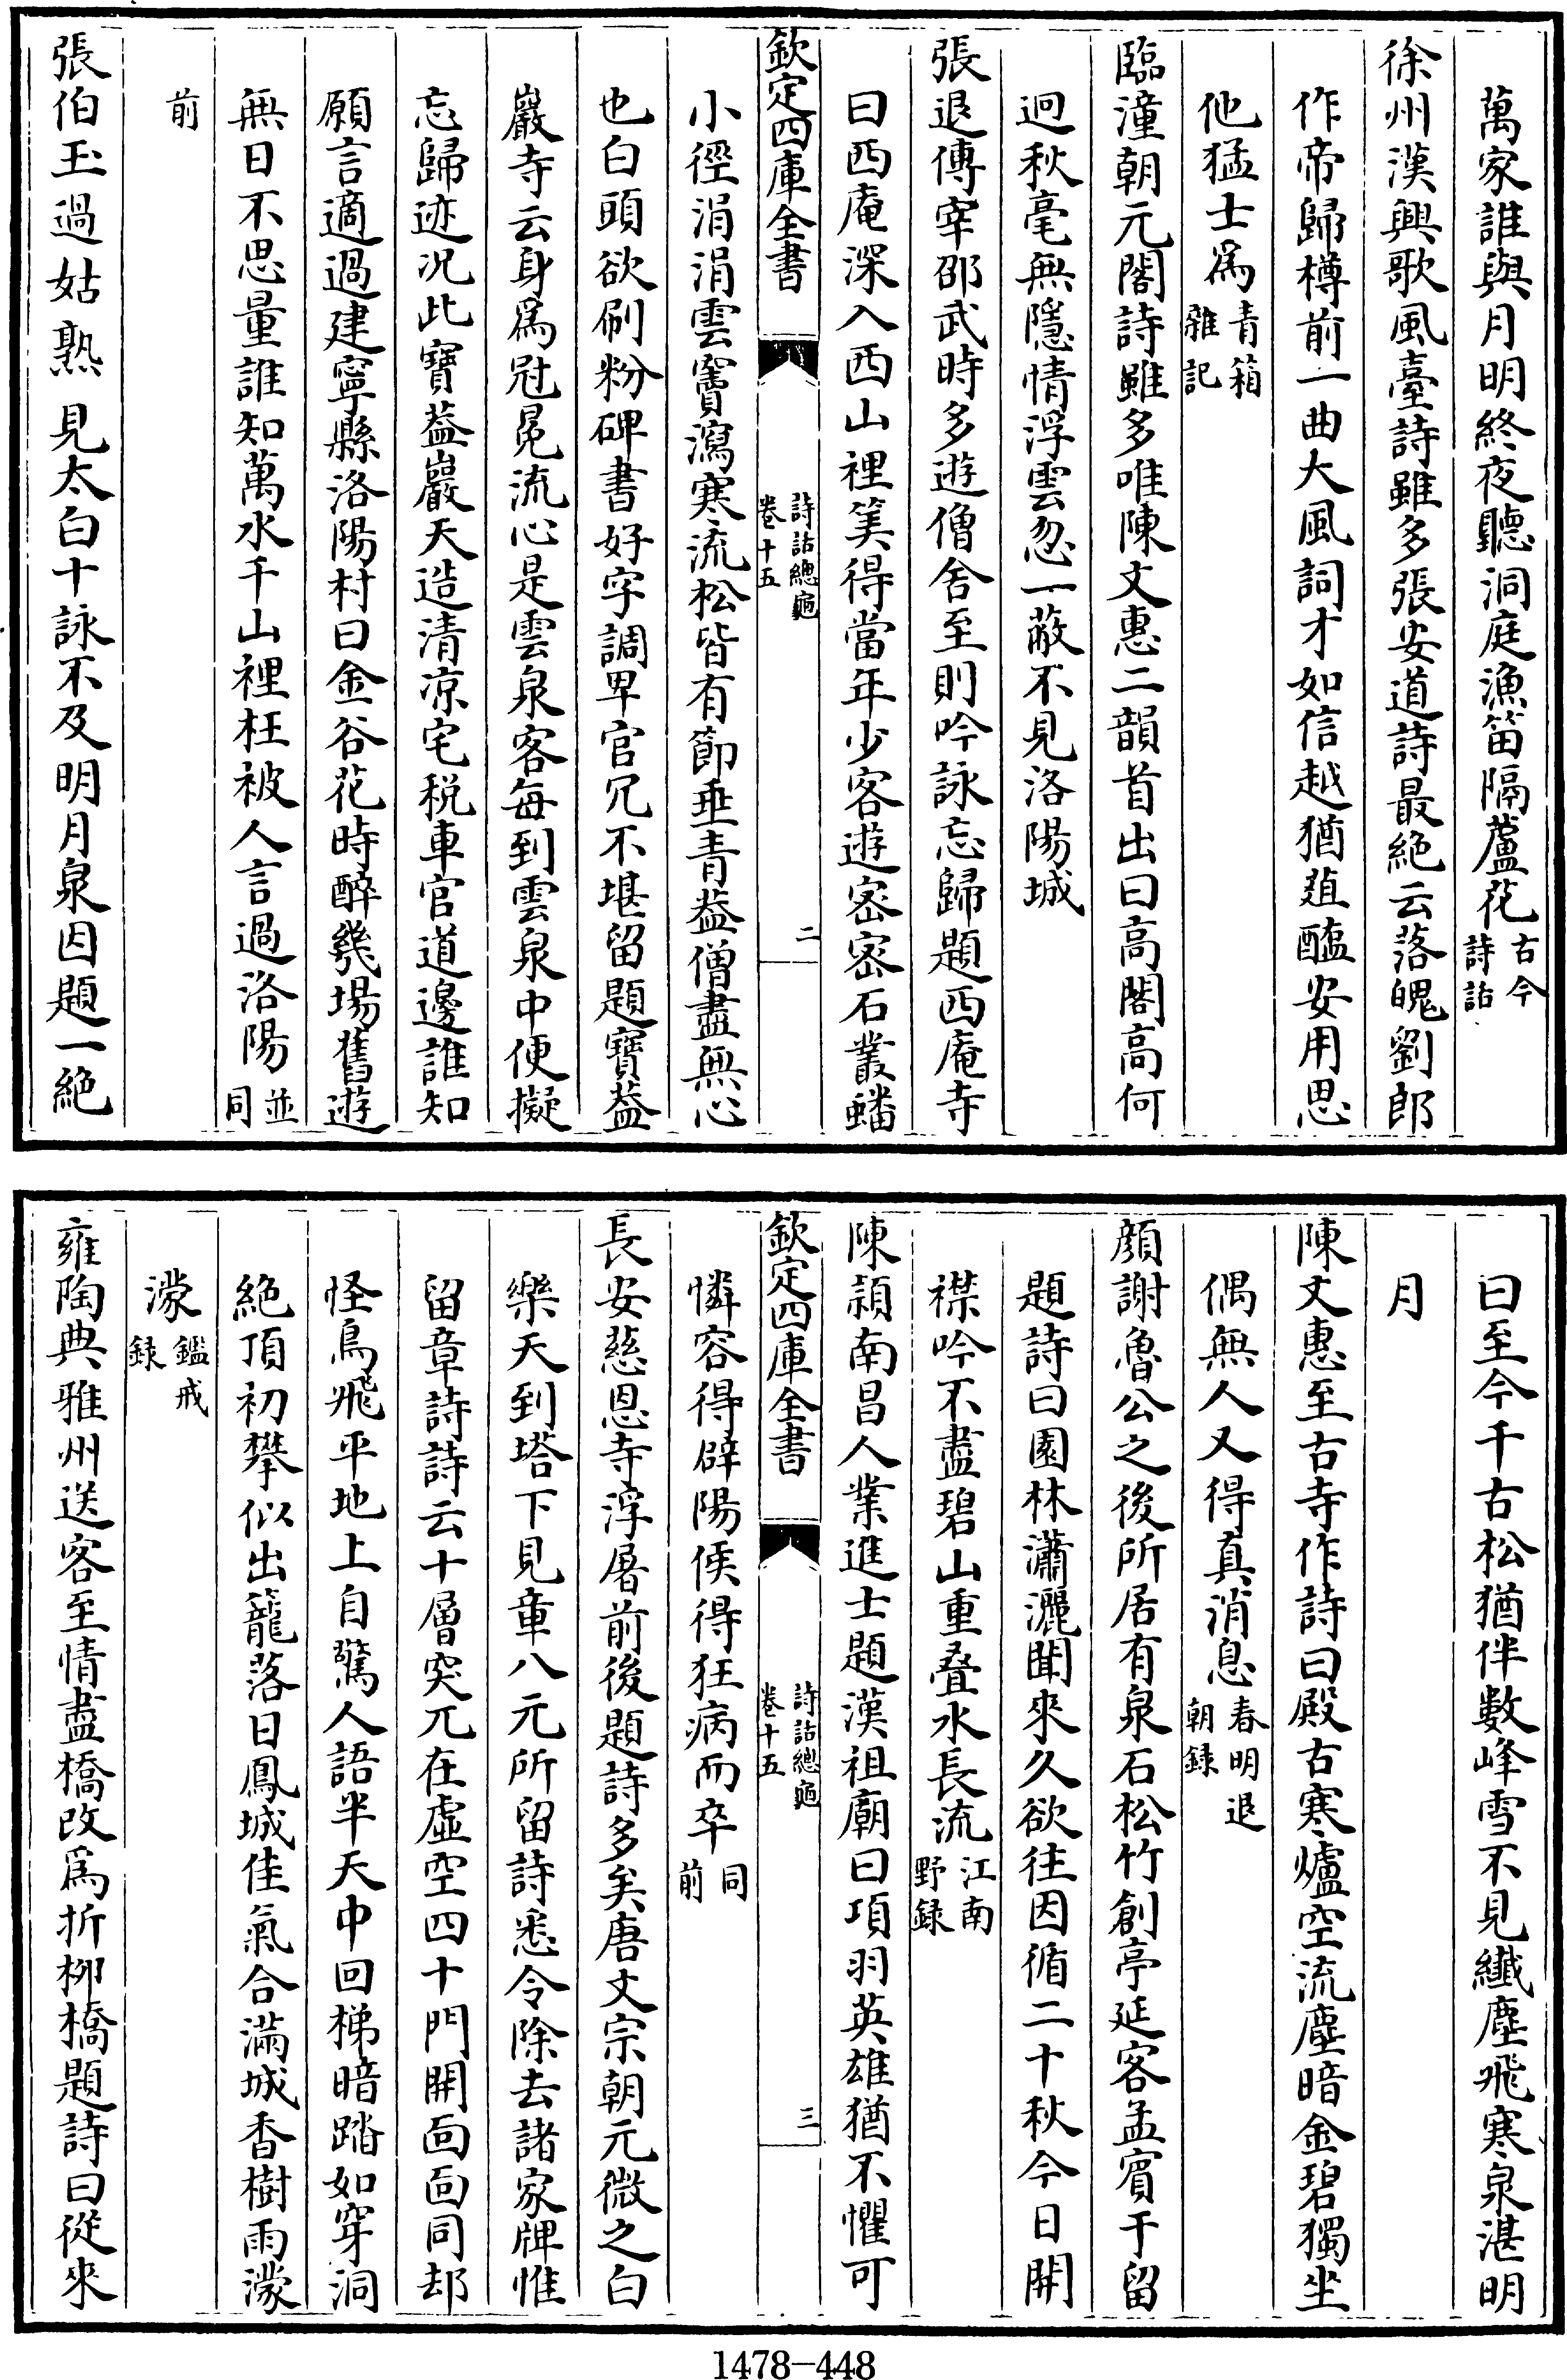 萬家誰與月明終夜聽洞庭漁笛隔蘆花古今詩話
徐州漢興歌風臺詩雖多張安道詩最絶云落魄劉郎
作帝歸樽前一曲大風詞才如信越猶葅醢安用思
他猛士為青箱雜記
臨潼朝元閣詩雖多唯陳文惠二韻首出曰高閣高何
迥秋毫無隱情浮雲忽一蔽不見洛陽城
張退傅宰邵武時多遊僧舍至則吟詠忘歸題西庵寺
曰西庵深入西山裡筭得當年少客遊密密石叢蟠
欽定四庫全書
詩話總龜
卷十五
二
小徑涓涓雲竇瀉寒流松皆有節垂青葢僧盡無心
也白頭欲刷粉碑書好字調卑官冗不堪留題寶葢
巖寺云身為冠冕流心是雲泉客每到雲泉中便擬
忘歸迹况此寶葢巖天造清凉宅税車官道邊誰知
願言適過建寧縣洛陽村曰金谷花時醉幾場舊遊
無日不思量誰知萬水千山裡枉被人言過洛陽並同
前
張伯玉過姑熟見太白十詠不及明月泉因題一絶
曰至今千古松猶伴數峰雪不見纎塵飛寒泉湛明
月
陳文惠至古寺作詩曰殿古寒爐空流塵暗金碧獨坐
偶無人又得真消息春明退朝録
顔謝魯公之後所居有泉石松竹創亭延客孟賓于留
題詩曰園林瀟灑聞來久欲往因循二十秋今日開
襟吟不盡碧山重叠水長流江南野録
陳頴南昌人業進士題漢祖廟曰項羽英雄猶不懼可
欽定四庫全書
詩話總龜
卷十五
三
憐容得辟陽侯得狂病而卒同前
長安慈恩寺浮屠前後題詩多矣唐文宗朝元微之白
樂天到塔下見章八元所留詩悉令除去諸家牌惟
留章詩詩云十層突兀在虚空四十門開面面同却
怪鳥飛平地上自驚人語半天中回梯暗踏如穿洞
絶頂初攀似出籠落日鳳城佳氣合滿城香樹雨濛
濛鑑戒録
雍陶典雅州送客至情盡橋改為折柳橋題詩曰從來
1478-448